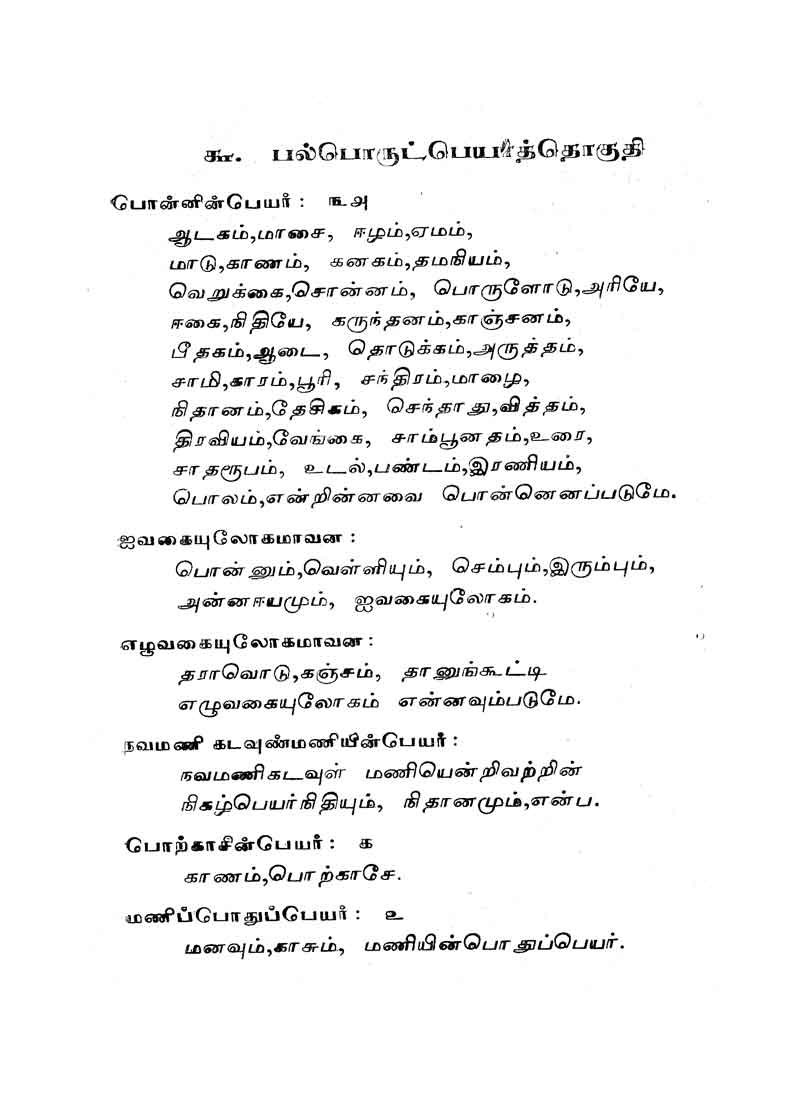 ௯. பல்பொருட்பெயர்த்தொகுதி
பொன்னின்பெயர் : ௩௮
ஆடகம்,மாசை, ஈழம்,ஏமம்,
மாடு,காணம், கனகம்,தமநியம்,
வெறுக்கை,சொன்னம், பொருளோடு,அரியே,
ஈகை,நிதியே, கருந்தனம்,காஞ்சனம்,
பீதகம்,ஆடை, தொடுக்கம்,அருத்தம்,
சாமி,காரம்,பூரி, சந்திரம்,மாழை,
நிதானம்,தேசிகம், செந்தாது,வித்தம்,
திரவியம்,வேங்கை, சாம்பூனதம்,உரை,
சாதரூபம், உடல்,பண்டம்,இரணியம்,
பொலம்,என்றின்னவை பொன்னெனப்படுமே.
ஐவகையுலோகமாவன :
பொன்னும்,வெள்ளியும், செம்பும்,இரும்பும்,
அன்னஈயமும், ஐவகையுலோகம்.
எழுவகையுலோகமாவன :
தராவொடு,கஞ்சம், தானுங்கூட்டி
எழுவகையுலோகம் என்னவும்படுமே.
நவமணி கடவுண்மணியின்பெயர் :
நவமணிகடவுள் மணியென்றிவற்றின்
நிகழ்பெயர்நிதியும், நிதானமும்,என்ப.
பொற்காசின்பெயர் : ௧
காணம்,பொற்காசே.
மணிப்பொதுப்பெயர் : ௨
மனவும்,காசும், மணியின்பொதுப்பெயர்.